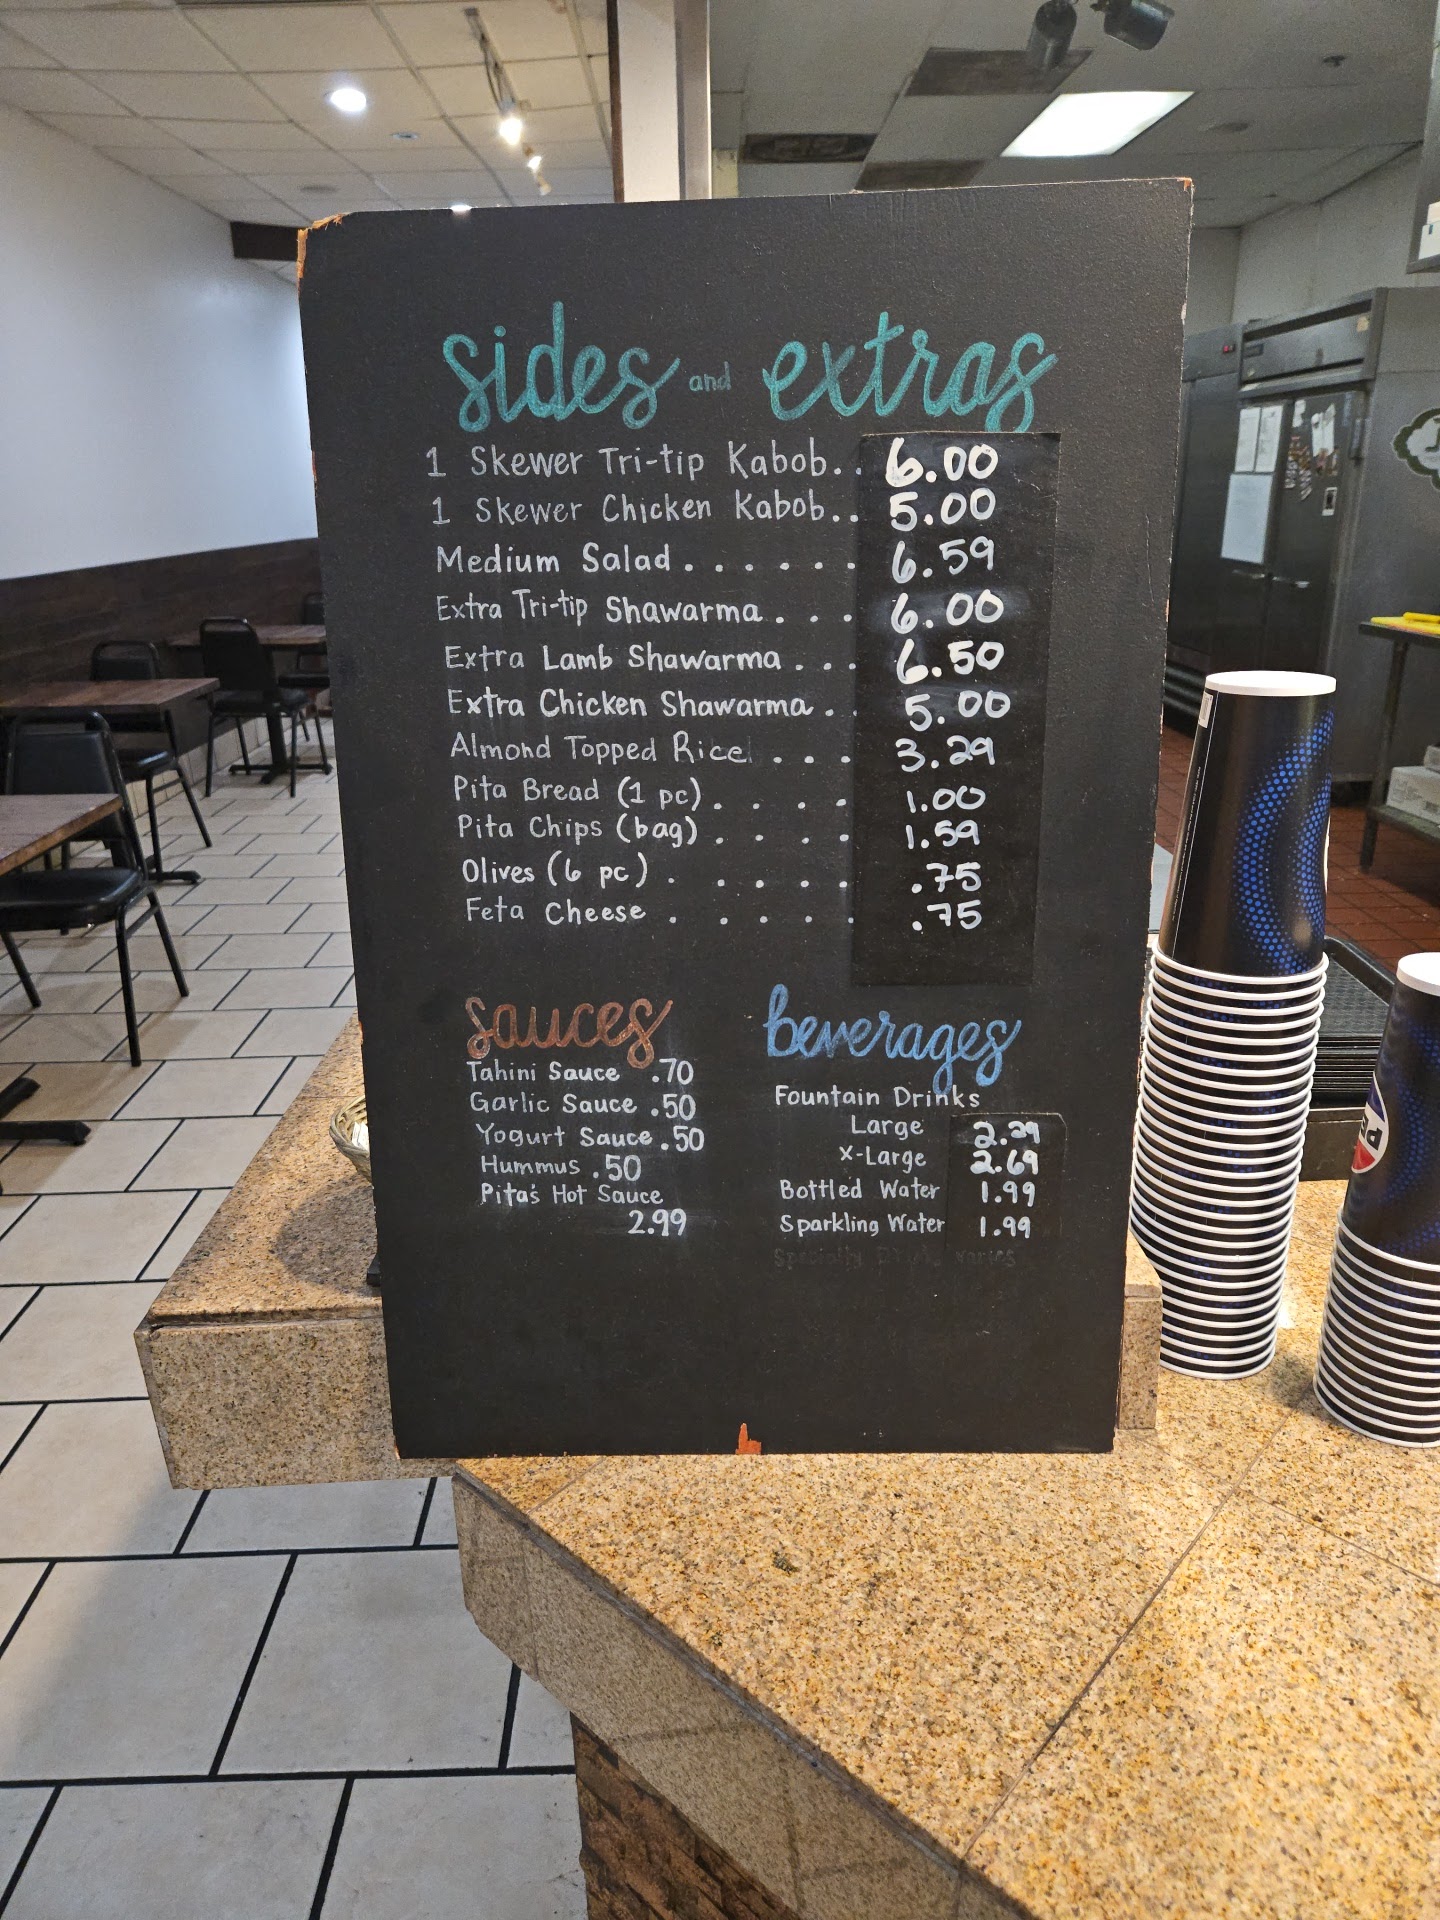 sides and extras
1 Skewer Tri-tip Kabob.. 6.00
1 Skewer Chicken Kabob.. 5.00
Medium Salad...... 6.59
Extra Tri-tip Shawarma... 6.00
Extra Lamb Shawarma... 6.50
Extra Chicken Shawarma.. 5.00
Almond Topped Rice... 3.29
Pita Bread (1 pc).... 1.00
Pita Chips (bag).... 1.59
Olives (6 pc)..... .75
Feta Cheese..... .75
sauces
Tahini Sauce .70
Garlic Sauce .50
Yogurt Sauce .50
Hummus .50
Pita's Hot Sauce
2.99
beverages
Fountain Drinks
Large 2.29
X-Large 2.69
Bottled Water 1.99
Sparkling Water 1.99
Specialty Drinks varies